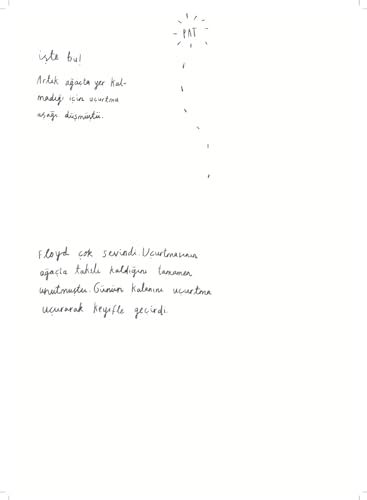 PAT
işte bu!
Artık ağaçta yer kal-
madığı için uçurtma
aşağı düşmüştü.
Floyd çok sevindi. Uçurtmasının
ağaçta takılı kaldığını tamamen
unutmuştu. Günün kalanını uçurtma
uçurarak keyifle geçirdi.